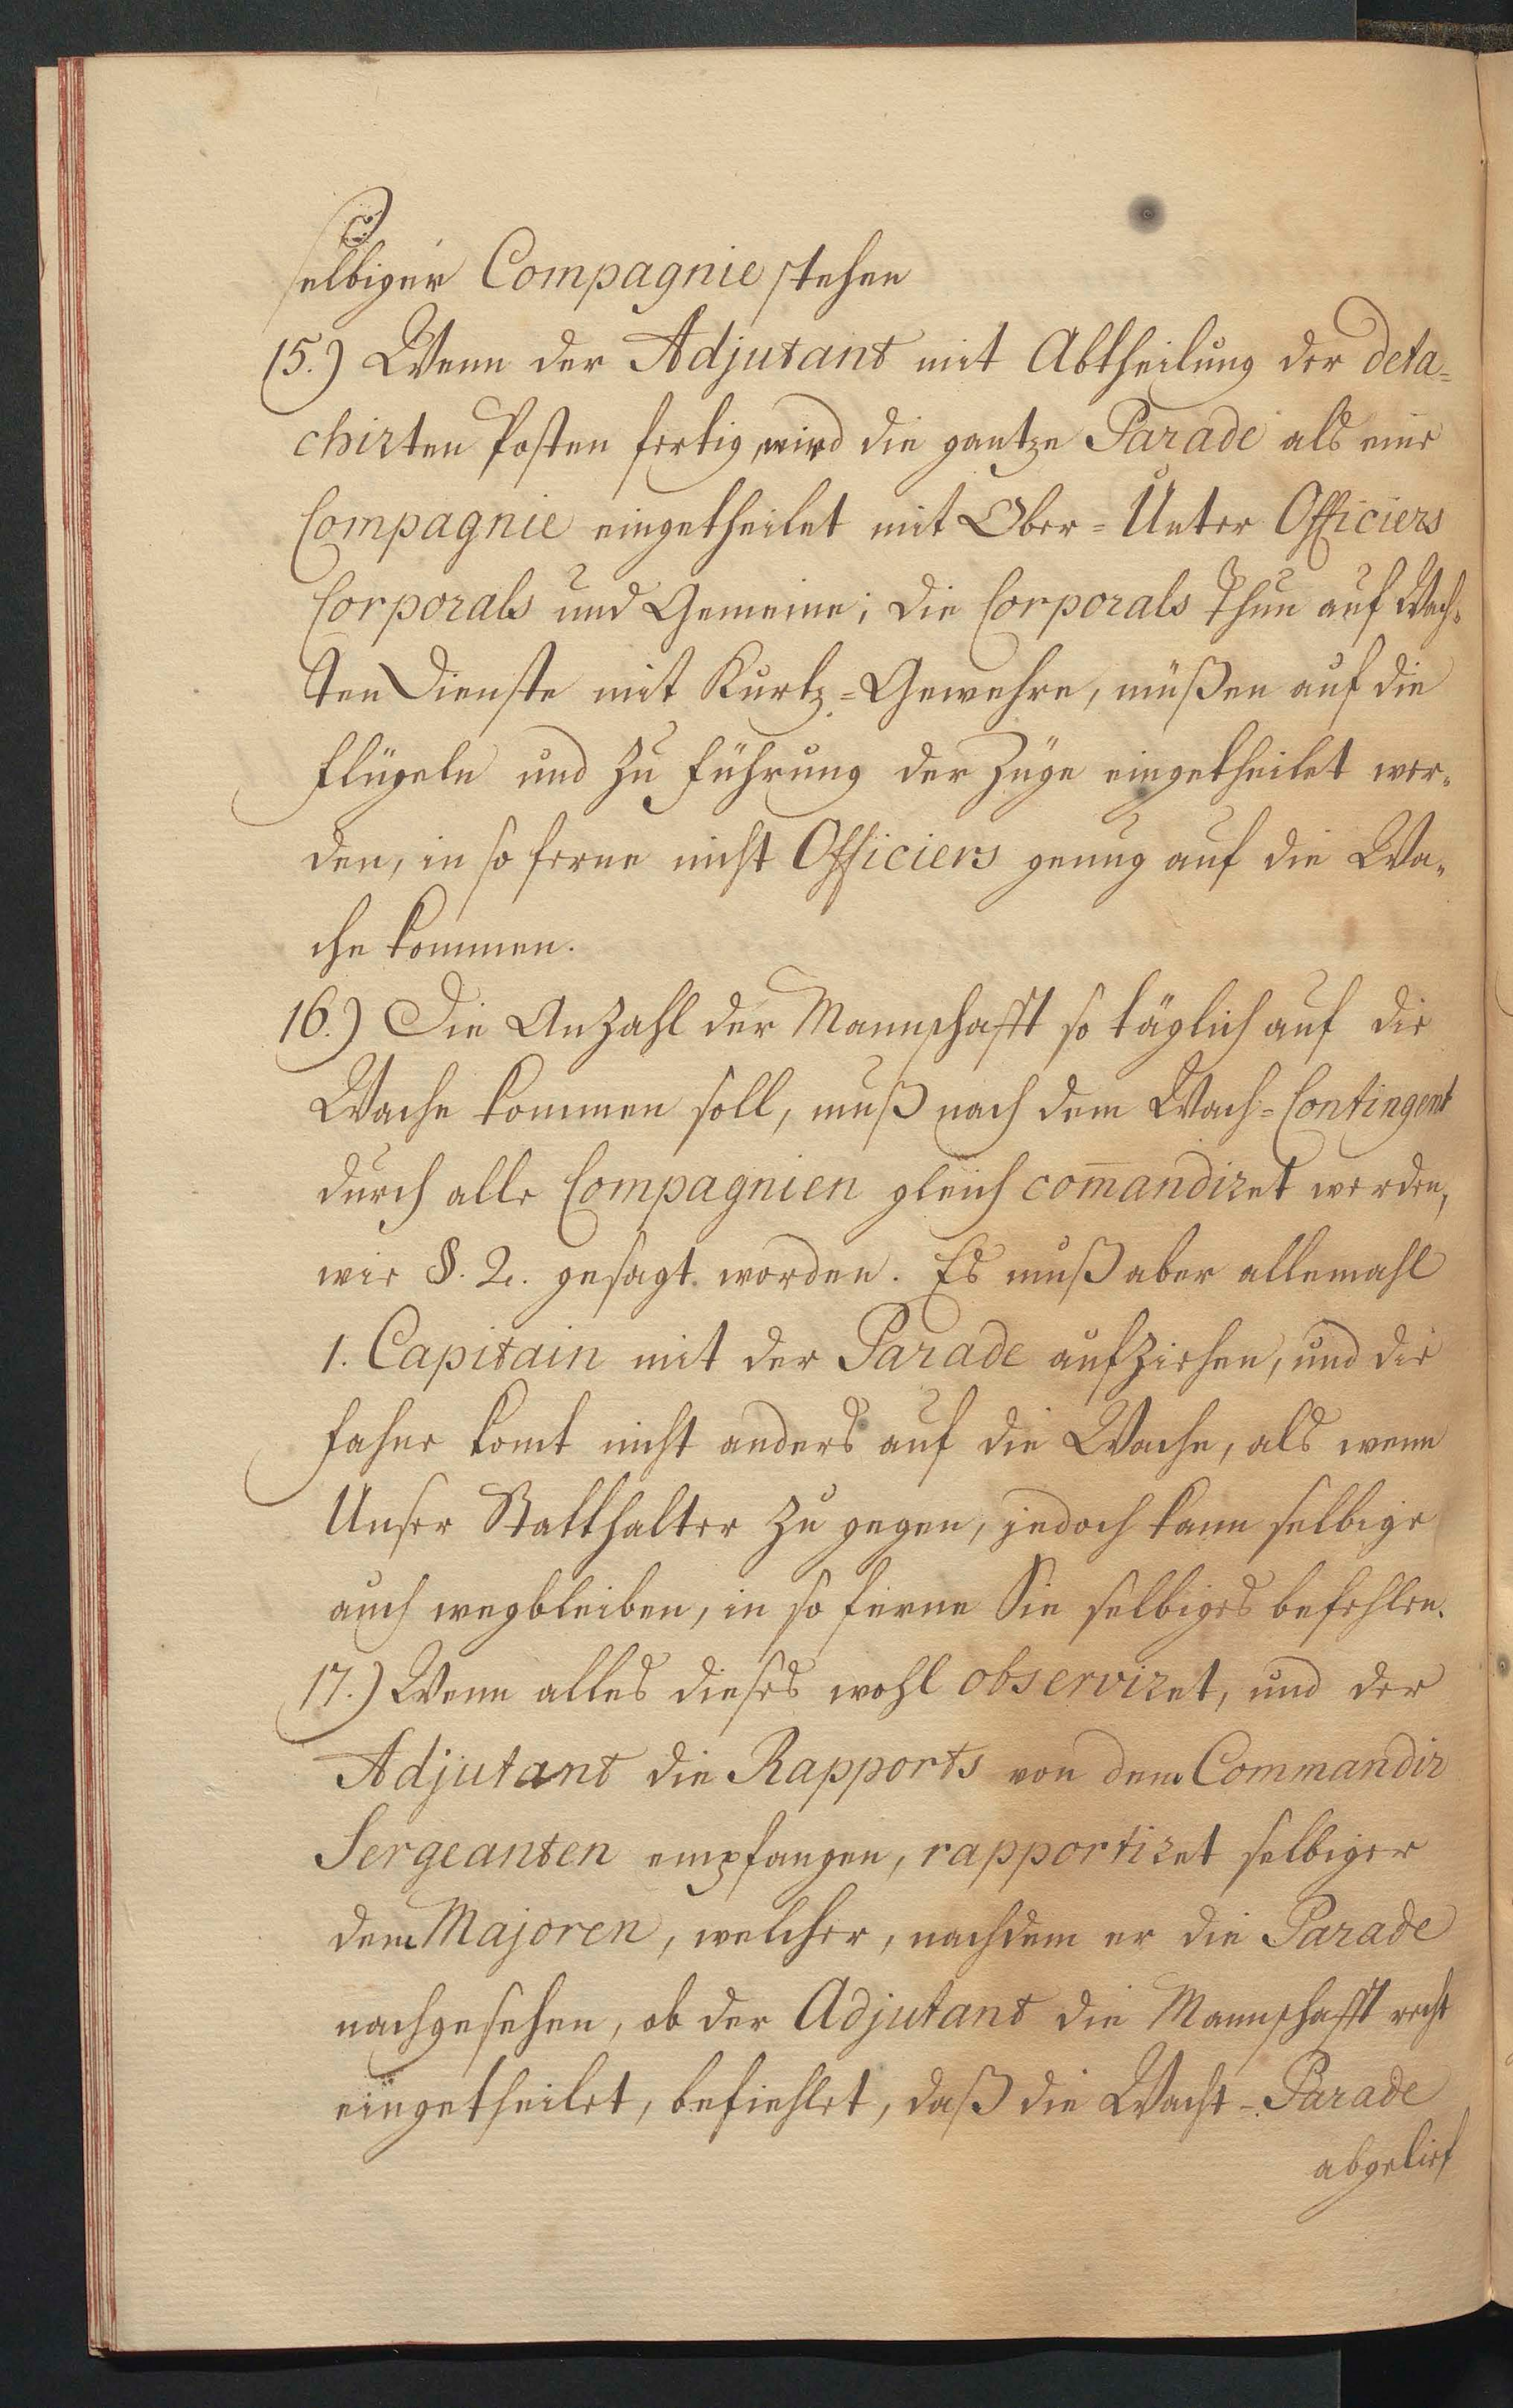 selbiger Compagnie stehen
15.) Wenn der Adjutant mit Abtheilung der deta-
chirten Posten fertig, wird die gantze Parade als eine
Compagnie eingetheilet mit Ober- Unter Officiers
Corporals und Gemeine; die Corporals thun auf Wach-
ten Dienste mit Kurtz-Gewehre, müßen auf die
Flügeln und zu Führung der Züge eingetheilet wer-
den, in so ferne nicht Officiers genug auf die Wa-
che kommen.
16.) Die Anzahl der Mannschafft so täglich auf die
Wache kommen soll, muß nach dem Wach-Contingent
durch alle Compagnien gleich com̄andiret werden,
wie §. 2. gesagt worden. Es muß aber allemahl
1. Capitain mit der Parade aufziehen, und die
Fahne komt nicht anders auf die Wache, als wenn
Unser Statthalter zu gegen, jedoch kann selbige
auch wegbleiben, in so ferne Sie selbiges befehlen.
17.) Wenn alles dieses wohl observiret, und der
Adjutant die Rapports von dem Commandir
Sergeanten empfangen, rapportiret selbiger
dem Majoren, welcher, nachdem er die Parade
nachgesehen, ob der Adjutant die Mannschafft recht
eingetheilet, befiehlet, daß die Wacht-Parade
abgelief